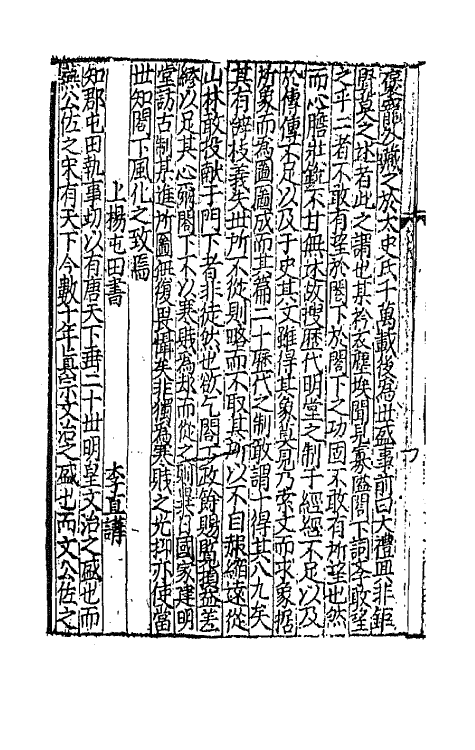 褒寵必媺之於太史氏千萬載後為世盛事前曰大禮與非鉅
賢莫之述者此之謂也某衿衣塵埃聞見寡隘閣下詞李敢望
之乎二者不敢有望於閣下於閣下之功固不敢有所望也然
而心膽壯銳不甘無休故搜歷代明堂之制于經經不足以及
於傳傳不足以及于史其文雖得其象莫見乃索文而求象據
所象而為圖圖成而其篇二十歷代之制敢謂十得其八九矣
其有辭枝義失世所不從則略而不取其所以不自赧縮遠從
山林敢投獻于門下者非徒然也欲乞閣下政餘賜覽損益差
繆以足其心爾閣下不以寒賤為却而從之則異日國家建明
堂訪古制某進所圖無復畏懾矣非獨為寒賤之光抑亦使當
世知閣下風化之致焉
上楊屯田書 李直講
知郡屯田執事切以有唐天下垂二十世明皇文治之盛也而
燕公佐之宋有天下今數十年真宗文治之盛也而文公佐之